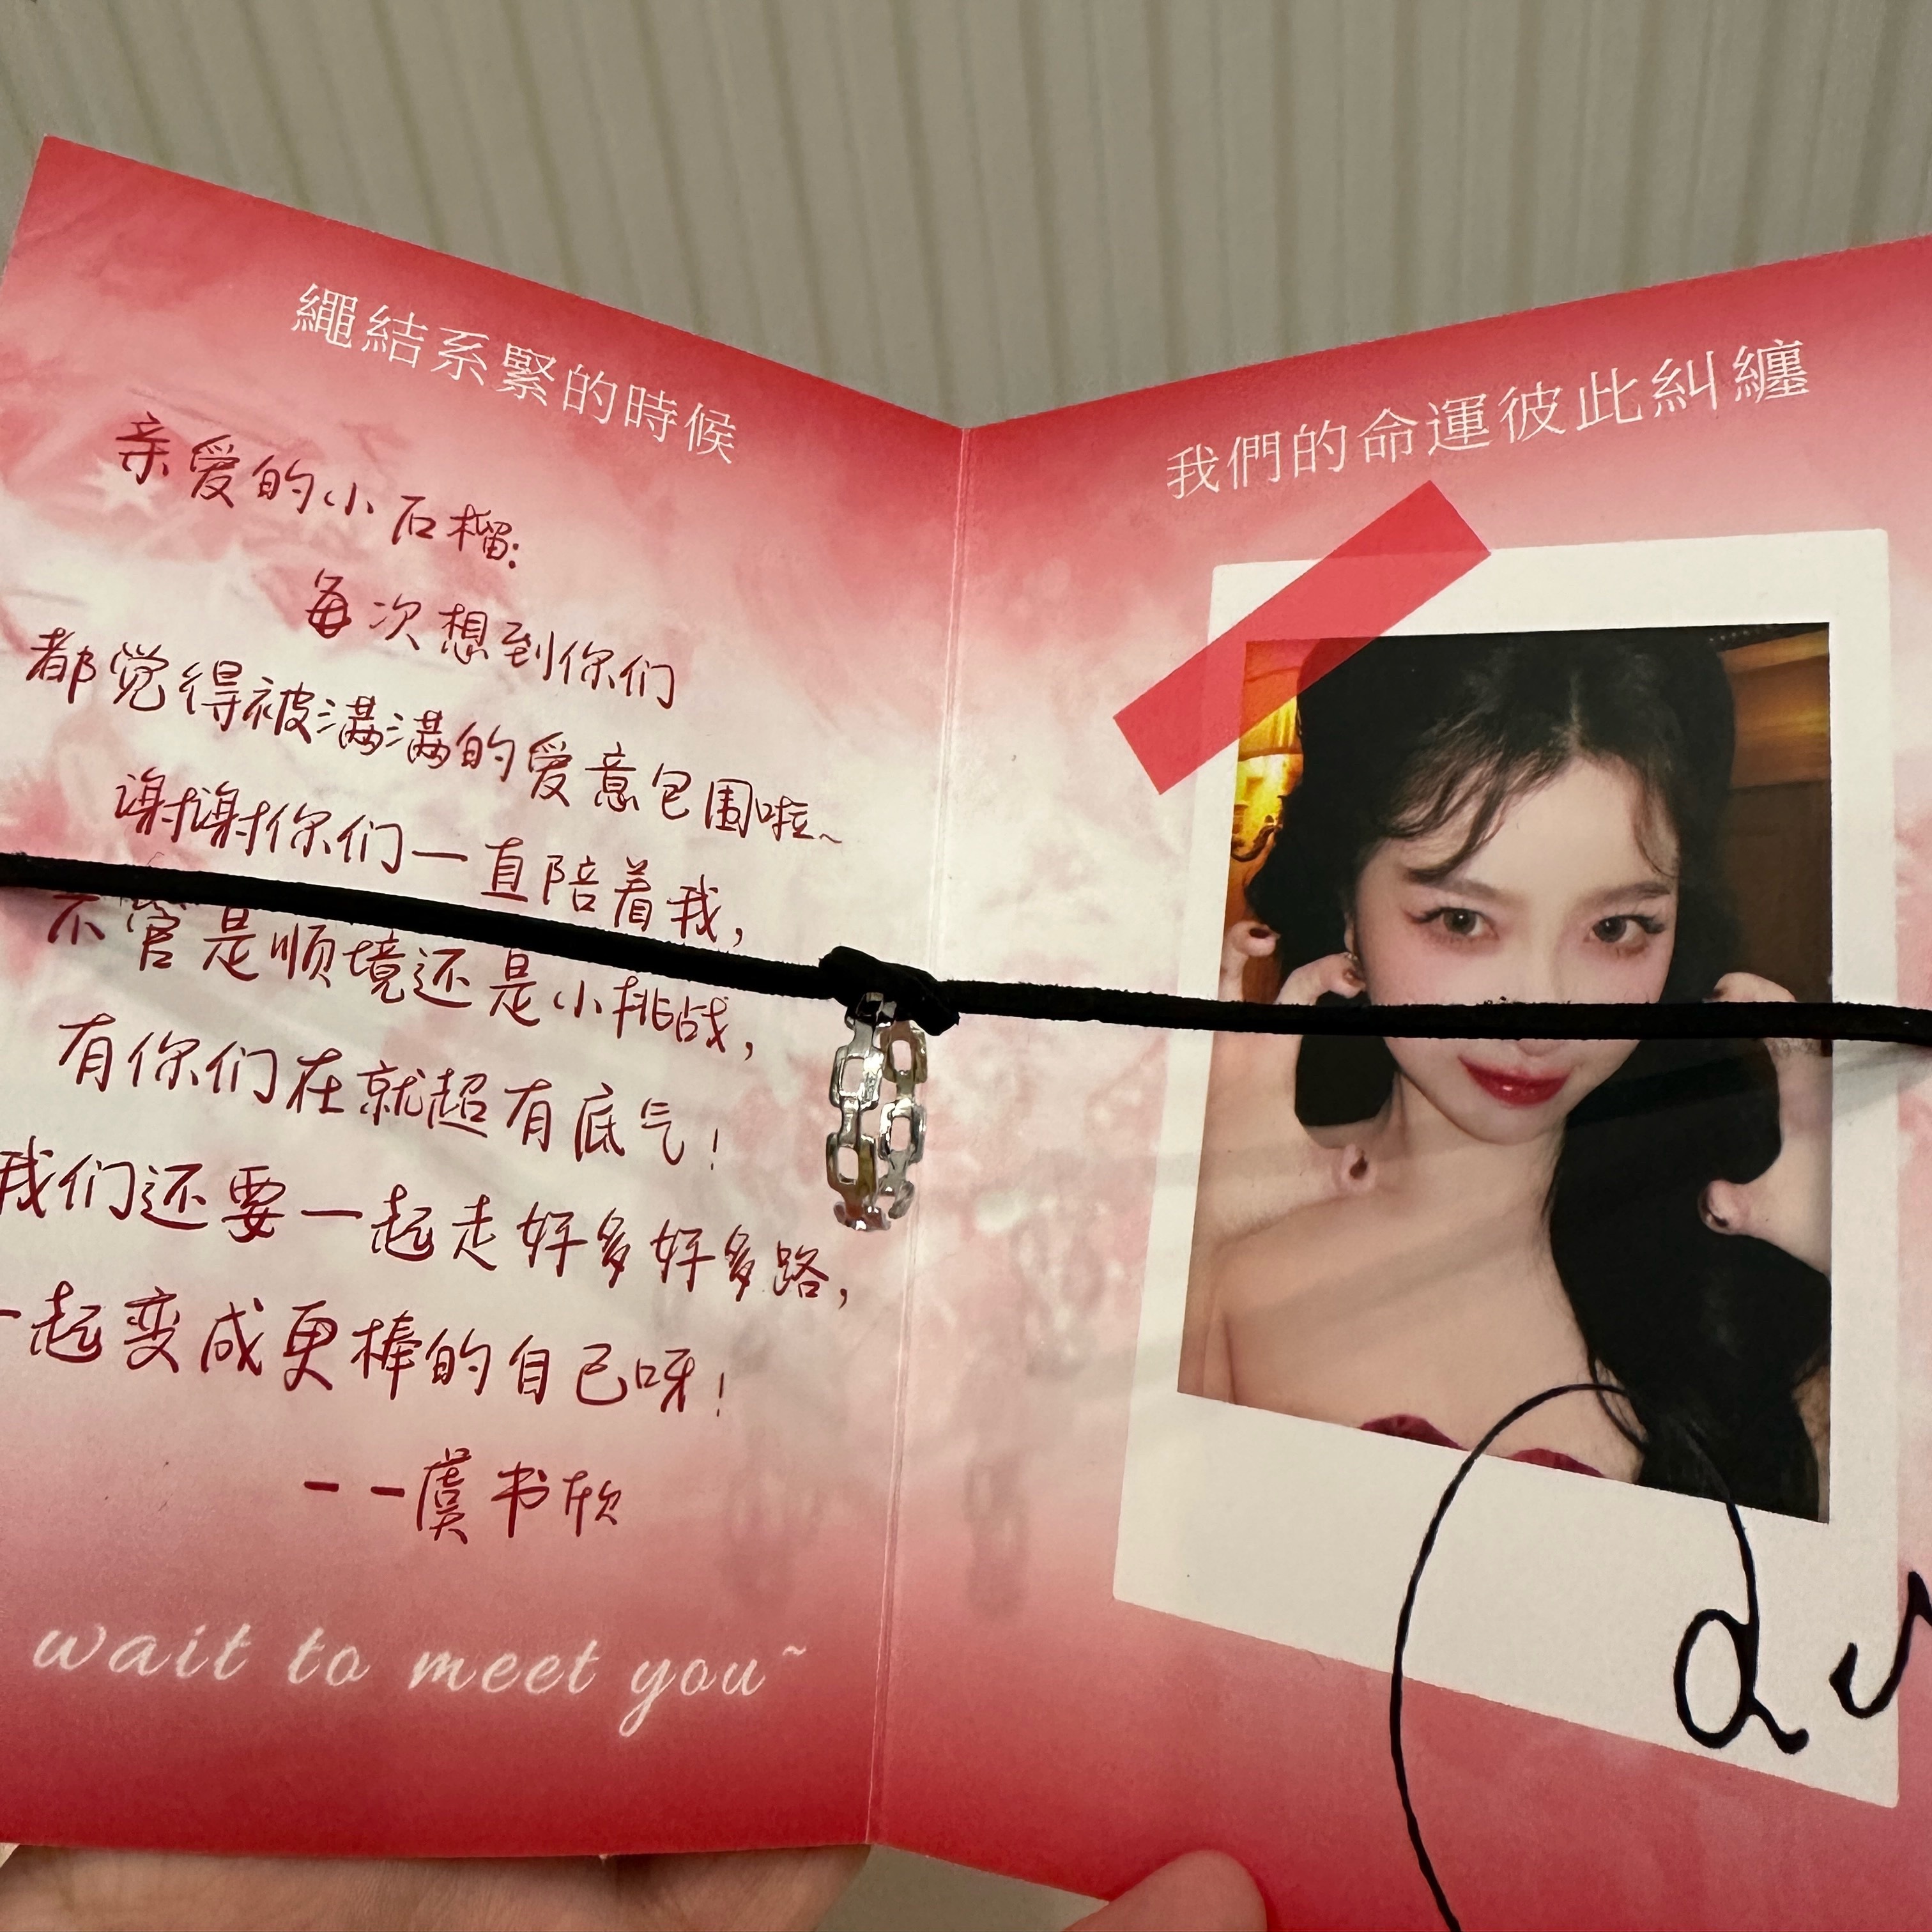 繩結系緊的時候
亲爱的小石榴:
每次想到你们
都觉得被满满的爱意包围啦~
谢谢你们一直陪着我,
不管是顺境还是小挑战,
有你们在就超有底气!
我们还要一起走好多好多路,
一起变成更棒的自己呀!
--虞书欣
wait to meet you~
我們的命運彼此糾纏